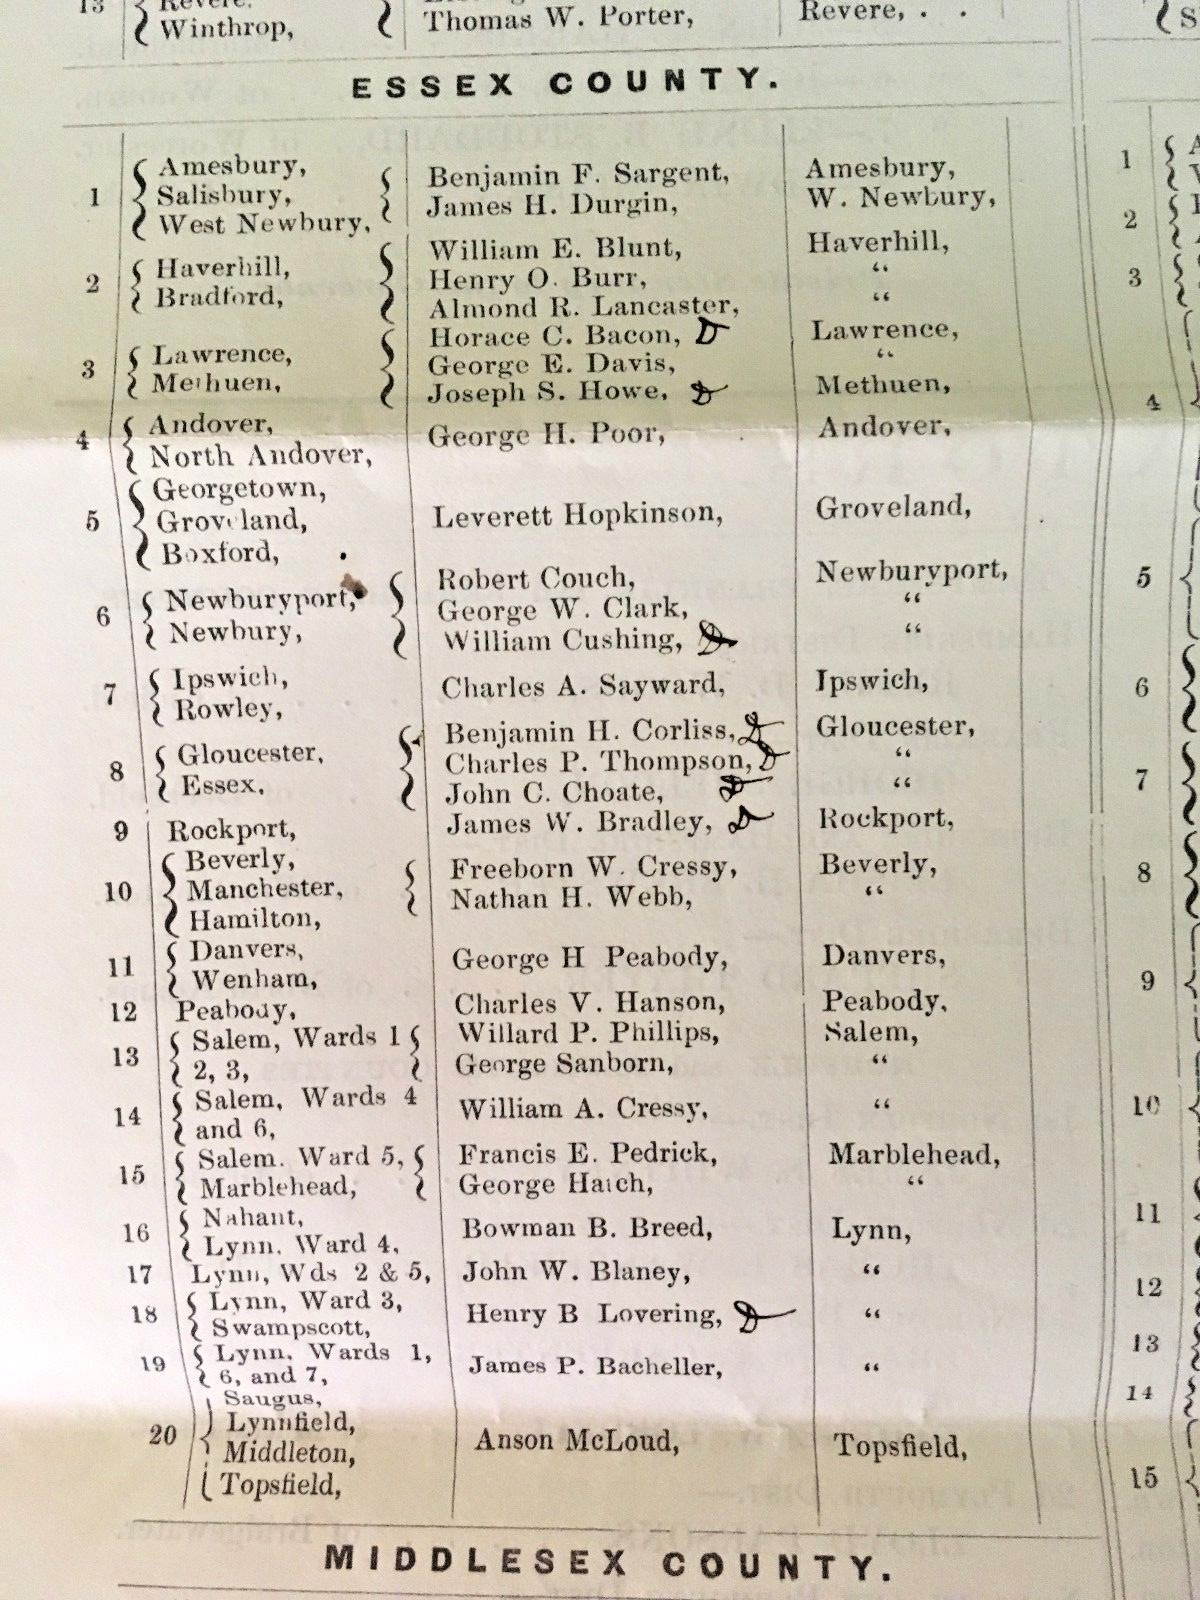 13 Revere,
Winthrop, Thomas W. Porter, Revere, . .
ESSEX COUNTY.
1 Amesbury, Salisbury, West Newbury, Benjamin F. Sargent, Amesbury,
James H. Durgin, W. Newbury,
2 Haverhill, Bradford, William E. Blunt, Haverhill,
Henry O. Burr, “
Almond R. Lancaster, “
3 Lawrence, Methuen, Horace C. Bacon, D Lawrence,
George E. Davis, “
Joseph S. Howe, D Methuen,
4 Andover, North Andover, George H. Poor, Andover,
5 Georgetown, Groveland, Boxford, Leverett Hopkinson, Groveland,
6 Newburyport, Newbury, Robert Couch, Newburyport,
George W. Clark, “
William Cushing, D “
7 Ipswich, Rowley, Charles A. Sayward, Ipswich,
8 Gloucester, Essex, Benjamin H. Corliss, D Gloucester,
Charles P. Thompson, D “
John C. Choate, D “
9 Rockport, James W. Bradley, D Rockport,
10 Beverly, Manchester, Hamilton, Freeborn W. Cressy, Beverly,
Nathan H. Webb, “
11 Danvers, Wenham, George H Peabody, Danvers,
12 Peabody, Charles V. Hanson, Peabody,
13 Salem, Wards 1 2, 3, Willard P. Phillips, Salem,
George Sanborn, “
14 Salem, Wards 4 and 6, William A. Cressy, “
15 Salem. Ward 5, Marblehead, Francis E. Pedrick, Marblehead,
George Hatch, “
16 Nahant, Lynn, Ward 4, Bowman B. Breed, Lynn,
17 Lynn, Wds 2 & 5, John W. Blaney, “
18 Lynn, Ward 3, Swampscott, Henry B Lovering, D “
19 Lynn, Wards 1, 6, and 7, James P. Bacheller, “
20 Saugus, Lynnfield, Middleton, Topsfield, Anson McLoud, Topsfield,
MIDDLESEX COUNTY.
1
2
3
4
5
6
7
8
9
10
11
12
13
14
15